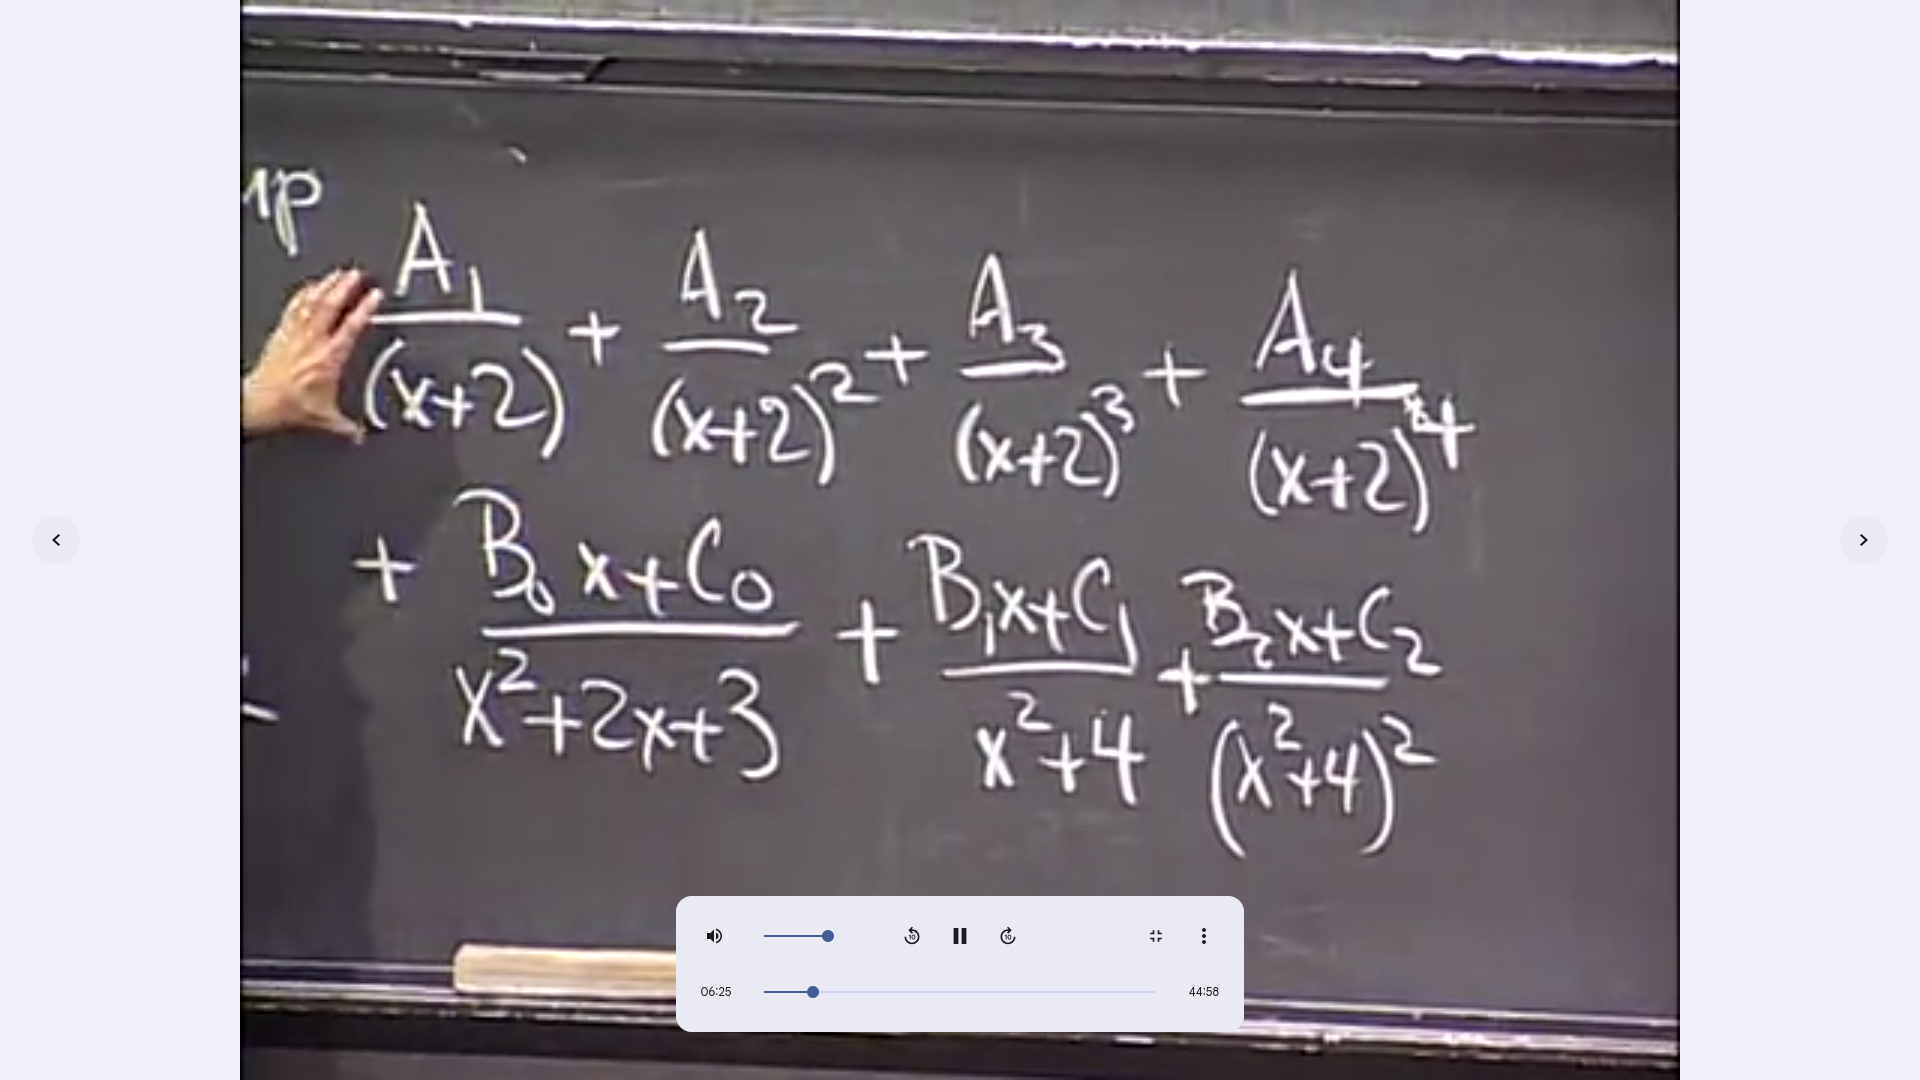 up
A₁/(x+2) + A₂/(x+2)² + A₃/(x+2)³ + A₄/(x+2)⁴
+ B₀x+C₀/x²+2x+3 + B₁x+C₁/x²+4 + B₂x+C₂/(x²+4)²
10 10
06:25 44:58